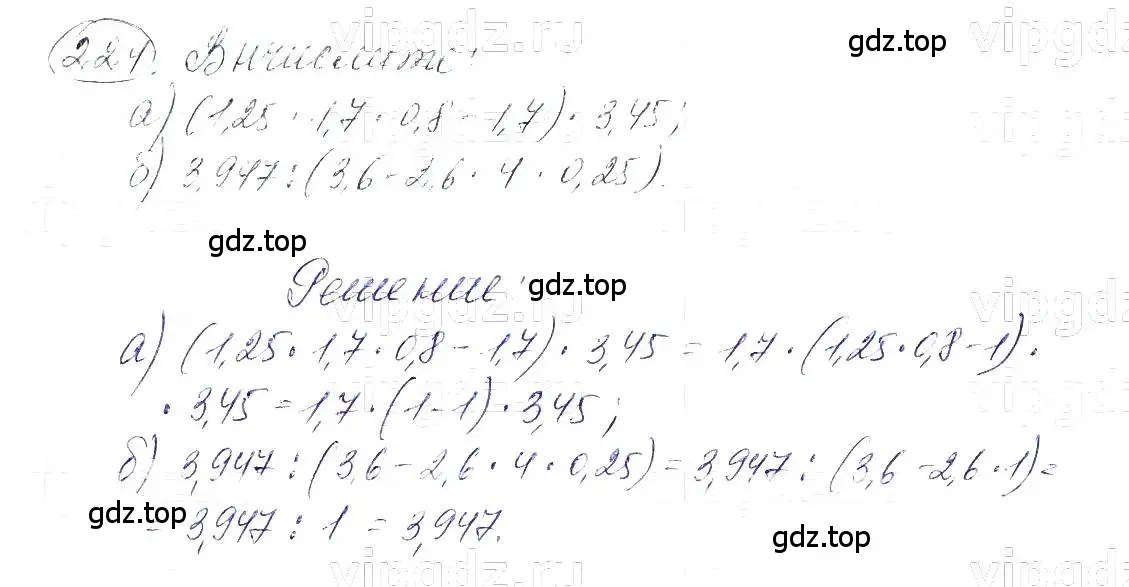 vipgdz.ru
224. Вычислите:
gdz.top
vipgdz
а) (1,25 · 1,7 · 0,8 - 1,7) · 3,45;
б) 3,947 : (3,6 - 2,6 · 4 · 0,25).
gdz.top
Решение:
gdz.top
vipgdz.ru
vipgdz
а) (1,25 · 1,7 · 0,8 - 1,7) · 3,45 = 1,7 · (1,25 · 0,8 - 1) ·
· 3,45 = 1,7 · (1 - 1) · 3,45;
б) 3,947 : (3,6 - 2,6 · 4 · 0,25) = 3,947 : (3,6 - 2,6 · 1) =
gdz.top
= 3,947 : 1 = 3,947.
gdz.top
vipgdz.ru
vipgdz